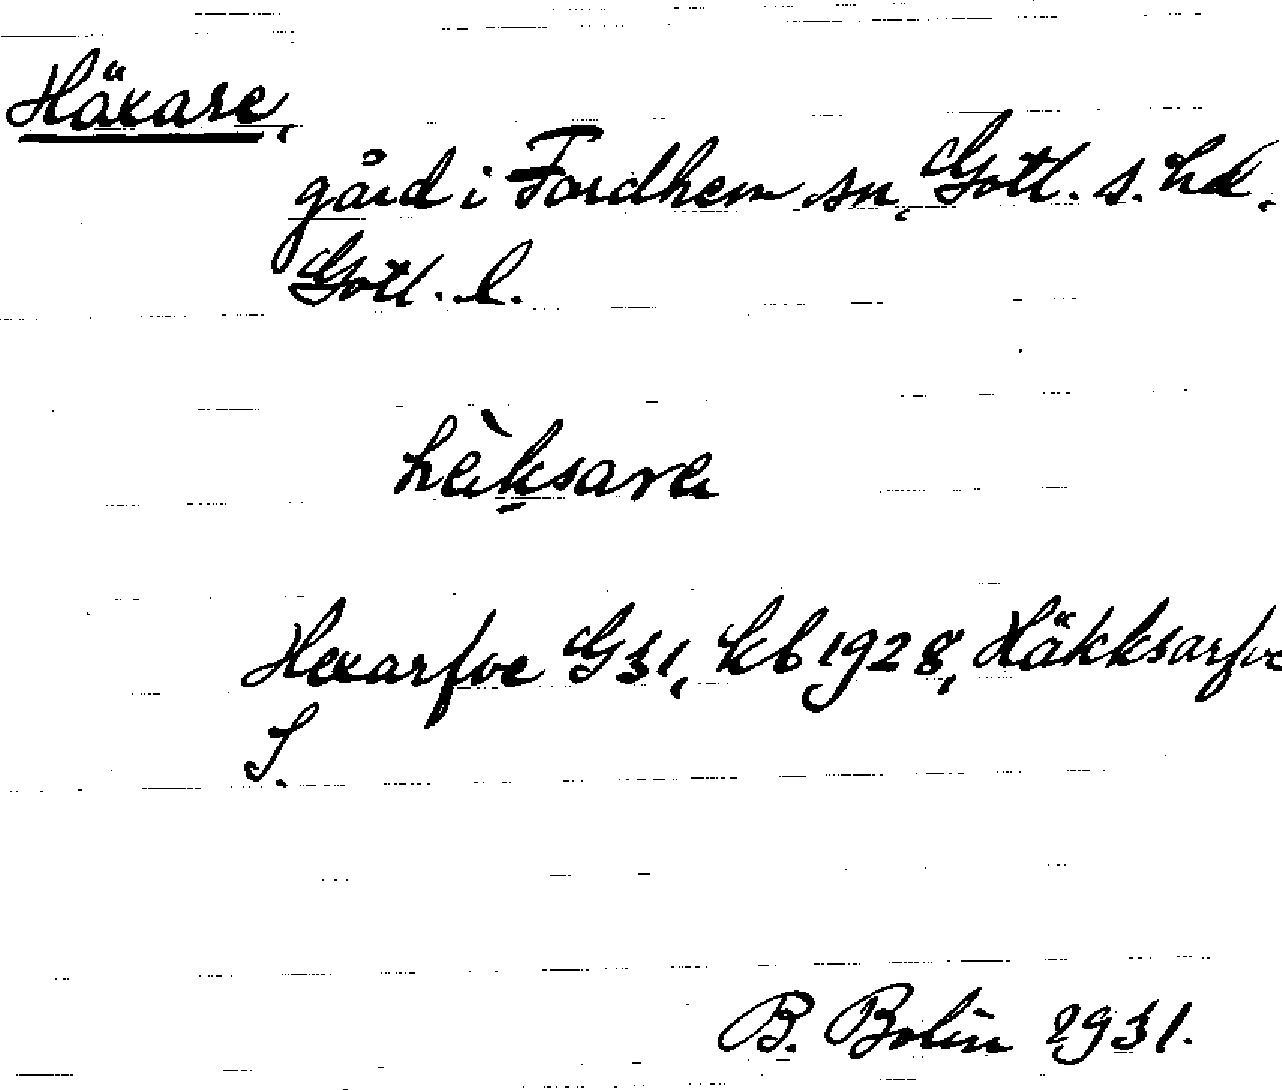 Häxare,
gård i Fardhem sn, Gotl. s. hd.
Gotl. l.
hèksare
Hexarfve G31, kb 1928, Häkksarfve
S.
B. Bolin 1931.